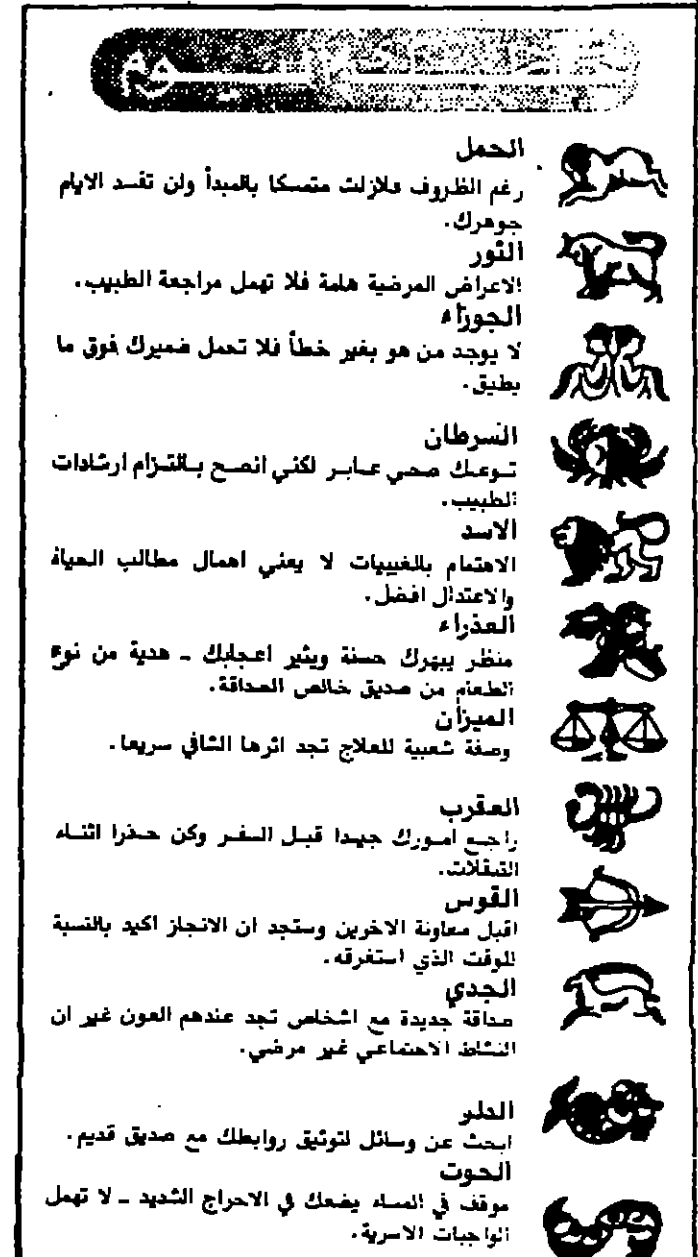 حظك اليوم
الحمل
رغم الظروف فلازلت متمسكا بالمبدأ ولن تفسد الايام
جوهرك.
الثور
الاعراض المرضية هامة فلا تهمل مراجعة الطبيب.
الجوزاء
لا يوجد من هو بغير خطأ فلا تحمل ضميرك فوق ما
يطيق.
السرطان
تـوعـك صحي عـابـر لكني انصـح بـالتـزام ارشادات
الطبيب.
الاسد
الاهتمام بالغيبيات لا يعني اهمال مطالب الحياة
والاعتدال افضل.
العذراء
منظر يبهرك حسنة ويثير اعجابك ـ هدية من نوع
الطعام من صديق خالص الصداقة.
الميزان
وصفة شعبية للعلاج تجد اثرها الشافي سريعا.
العقرب
راجـع امـورك جيـدا قبـل السفـر وكن حـذرا اثنـاء
التنقلات.
القوس
اقبل معاونة الاخرين وستجد ان الانجاز اكيد بالنسبة
للوقت الذي استغرقه.
الجدي
صداقة جديدة مع اشخاص تجد عندهم العون غير ان
النشاط الاجتماعي غير مرضي.
الدلو
ابحث عن وسائل لتوثيق روابطك مع صديق قديم.
الحوت
موقف في المساء يضعك في الاحراج الشديد ـ لا تهمل
الواجبات الاسرية.